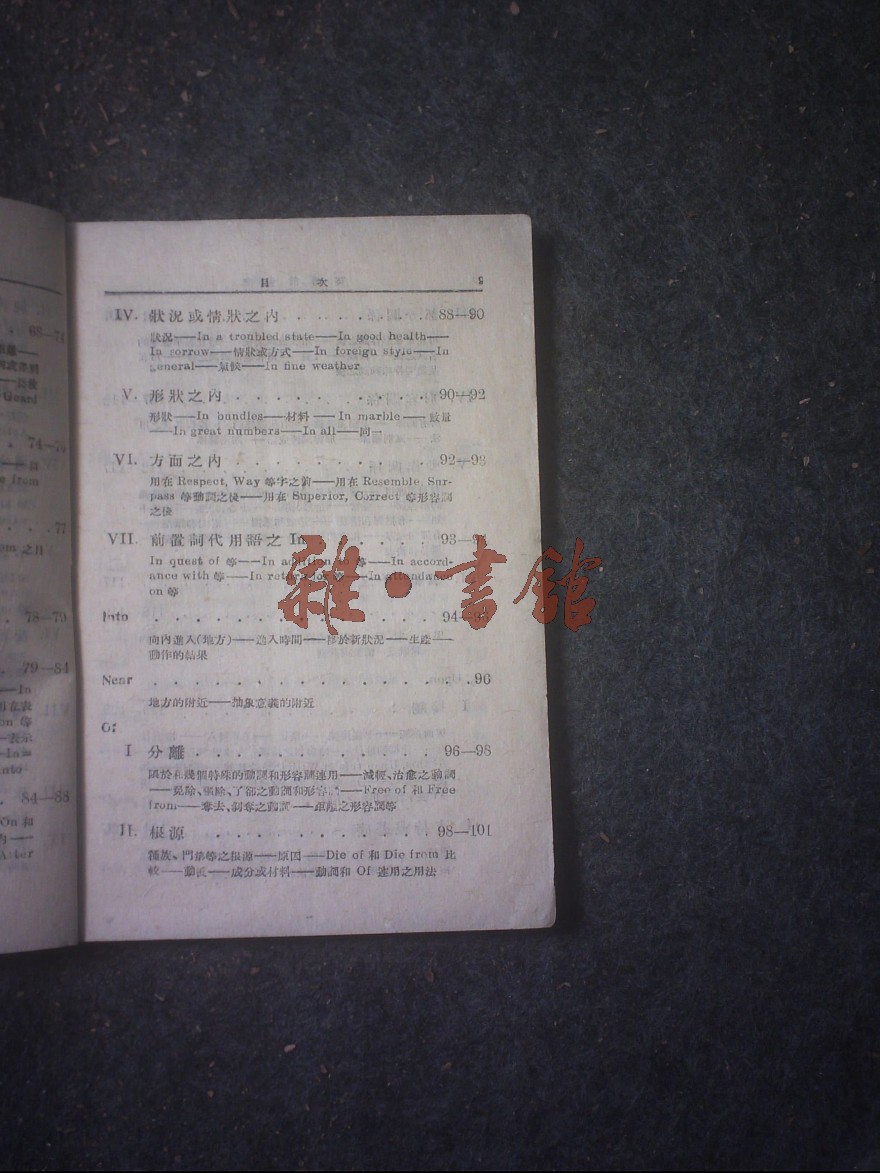 68—74
Guard
74—
from
77
78—79
79—84
In
84—88
目 次 9
IV. 狀況或情狀之內 . . . . . . . . 88—90
狀況——In a troubled state——In good health——
In sorrow——情狀或方式——In foreign style——In
general——氣候——In fine weather
V. 形狀之內 . . . . . . . . . . 90—92
形狀——In bundles——材料——In marble——數量
——In great numbers——In all——同一
VI. 方面之內 . . . . . . . . . . 92—93
用在 Respect, Way 等字之前——用在 Resemble, Sur-
pass 等動詞之後——用在 Superior, Correct 等形容詞
之後
VII. 前置詞代用語之 In . . . . . . 93—
In quest of 等——In addition to 等——In accord-
ance with 等——In return for 等——In attendance
on 等
Into . . . . . . . . . . . . 94—
向內進入(地方)——進入時間——移於新狀況——生產——
動作的結果
Near . . . . . . . . . . . . 96
地方的附近——抽象意義的附近
Of
I 分離 . . . . . . . . . . . 96—98
屬於和幾個特殊的動詞和形容詞連用——減輕、治愈之動詞
——免除、驅除、了卻之動詞和形容詞——Free of 和 Free
from——奪去、剝奪之動詞——距離之形容詞等
II. 根源 . . . . . . . . . . . 98—101
種族、門第等之根源——原因——Die of 和 Die from 比
較——動機——成分或材料——動詞和 Of 連用之用法
雜·書館